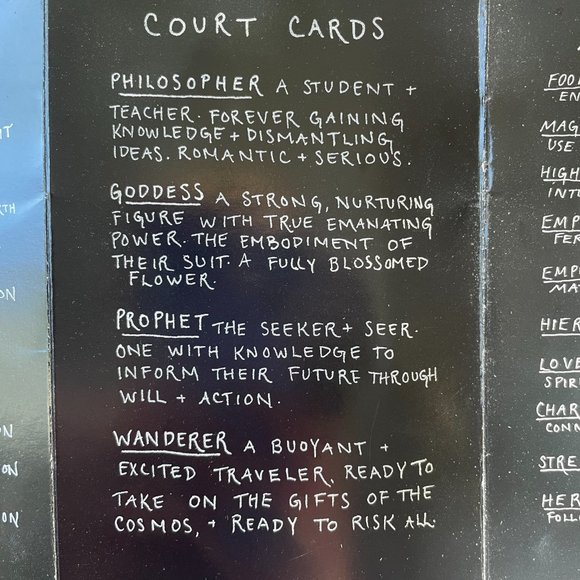 COURT CARDS
PHILOSOPHER A STUDENT +
TEACHER. FOREVER GAINING
KNOWLEDGE + DISMANTLING
IDEAS. ROMANTIC + SERIOUS.
GODDESS A STRONG, NURTURING
FIGURE WITH TRUE EMANATING
POWER. THE EMBODIMENT OF
THEIR SUIT. A FULLY BLOSSOMED
FLOWER.
PROPHET THE SEEKER + SEER.
ONE WITH KNOWLEDGE TO
INFORM THEIR FUTURE THROUGH
WILL + ACTION.
WANDERER A BUOYANT +
EXCITED TRAVELER, READY TO
TAKE ON THE GIFTS OF THE
COSMOS, + READY TO RISK ALL.
FOO
EN
MAG
USE
HIGH
INT
EMP
FER
EMP
MA
HIER
LOVE
SPIR
CHAR
CONN
STRE
HER
FOLL